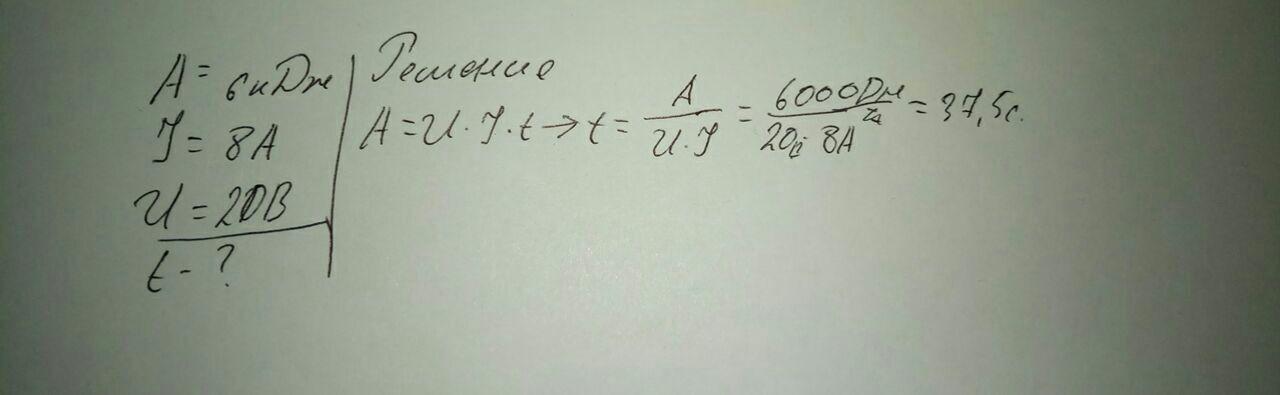 A = 6кДж
J = 8А
U = 20В
t - ?
Решение
A = U · J · t → t = A / U · J = 6000Дж / 20 · 8А = 37,5с.